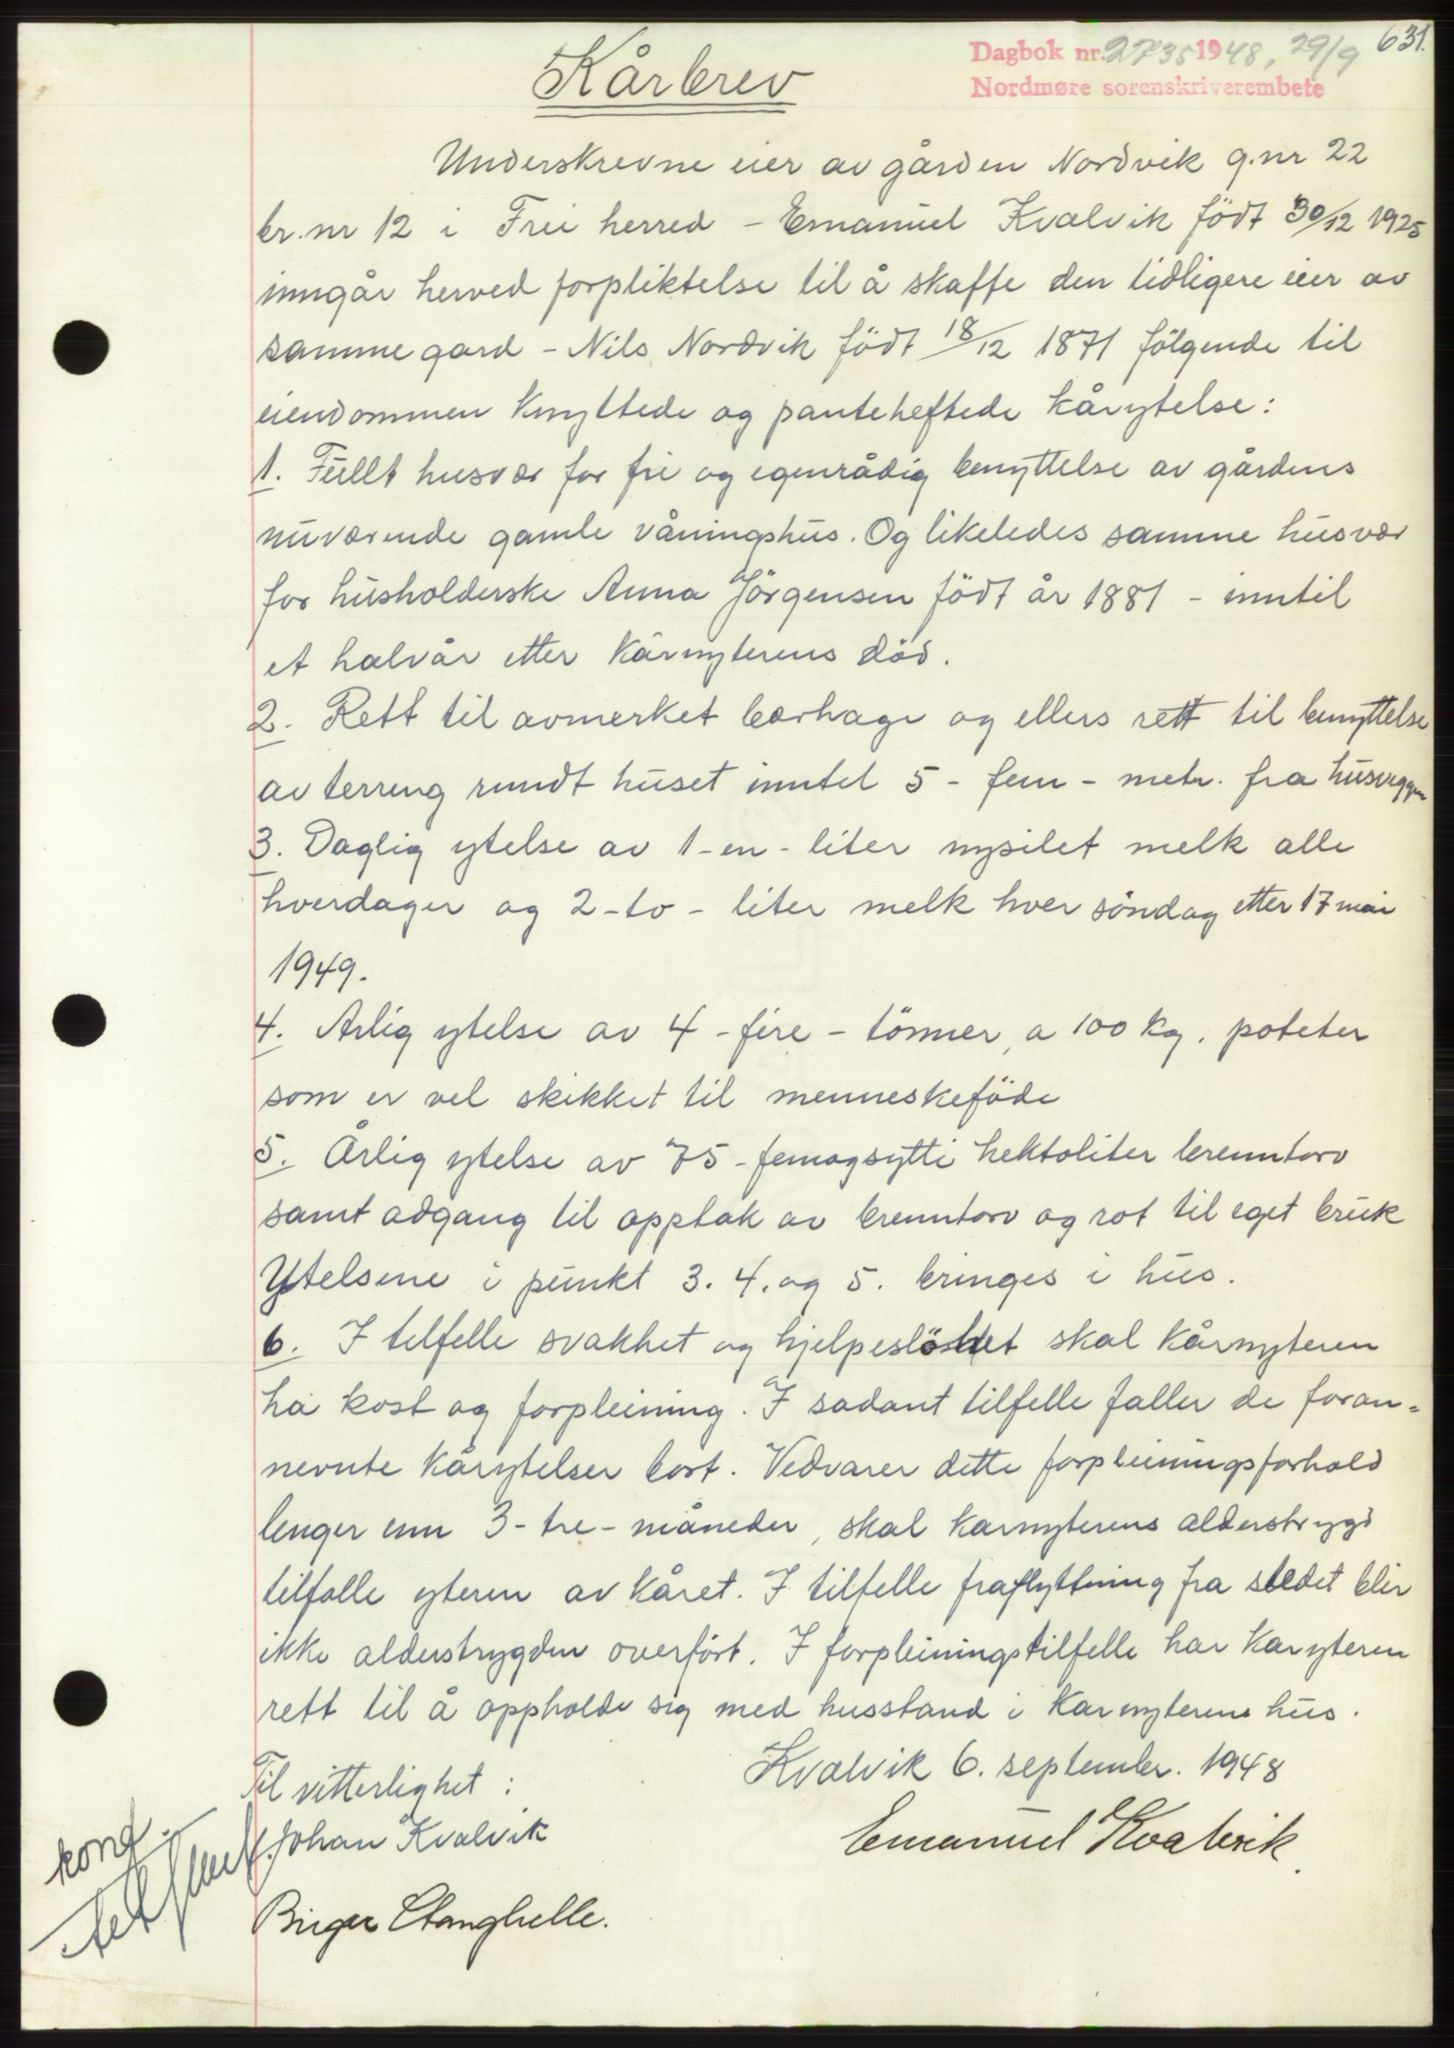 631.
Dagbok nr. 2735 1948, 29/9
Nordmøre sorenskriverembete
Kårbrev
Underskrevne eier av gården Nordvik g.nr 22
br.nr 12 i Frei herred – Emanuel Kvalvik födt 30/12 1925
inngår herved forpliktelse til å skaffe den tidligere eier av
samme gard – Nils Nordvik födt 18/12 1871 fölgende til
eiendommen knyttede og panteheftede kårytelse:
1. Fullt husvær for fri og egenrådig benyttelse av gårdens
nuværende gamle våningshus. Og likeledes samme husvær
for husholderske Anna Jörgensen födt år 1881 – inntil
et halvår etter kårnyterens död.
2. Rett til avmerket bærhage og ellers rett til benyttelse
av terreng rundt huset inntil 5 – fem – metr. fra husveggen
3. Daglig ytelse av 1 – en – liter nysilet melk alle
hverdager og 2 – to – liter melk hver söndag etter 17 mai
1949.
4. Arlig ytelse av 4 – fire – tönner, a 100 kg. poteter
som er vel skikket til menneskeföde
5. Årlig ytelse av 75 – femogsytti hektoliter brenntorv
samt adgang til opptak av brenntorv og rot til eget bruk
Ytelsene i punkt 3. 4. og 5. bringes i hus.
6. I tilfelle svakhet og hjelpeslöshet skal kårnyteren
ha kost og forpleining. I sådant tilfelle faller de foran=
nevnte kårytelser bort. Vedvarer dette forpleiningsforhold
lenger enn 3 – tre – måneder, skal karnyterens alderstrygd
tilfalle yteren av kåret. I tilfelle fraflyttning fra stedet blir
ikke alderstrygden overfört. I forpleiningstilfelle har karyteren
rett til å oppholde sig med husstand i karnyterens hus.
Kvalvik 6. september. 1948
Til vitterlighet:
Emanuel Kvalvik.
Johan Kvalvik
konf.
Birger Stanghelle.